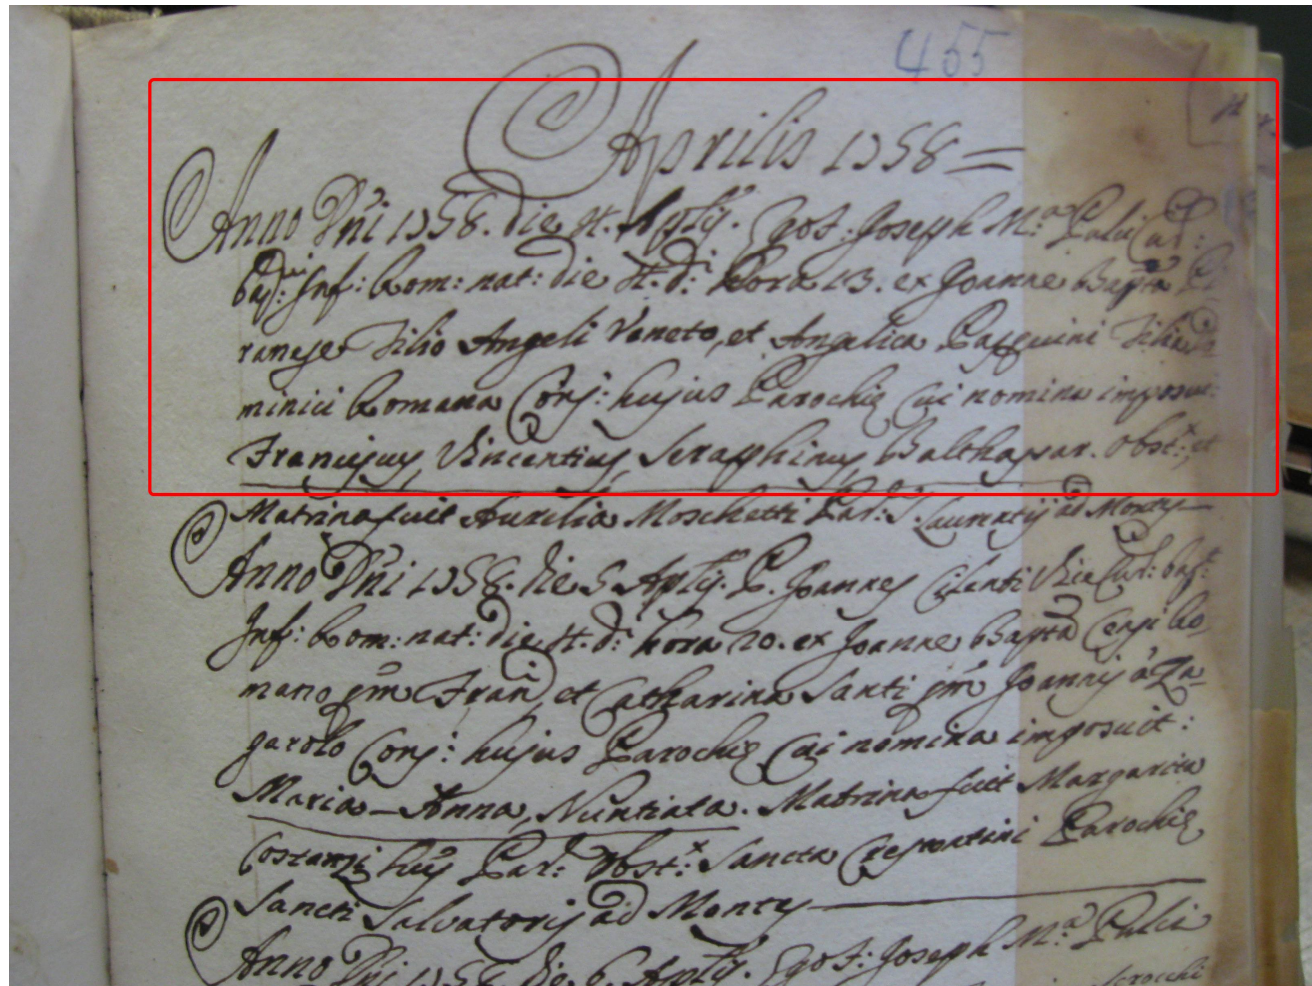 455
Aprilis 1758 =
Anno Dñi 1758. die 4. Aplis. Ego J. Joseph M.ª Pulci Cur:
bap: Inf: Rom: nat: die 4. d.ⁱ hora 13. ex Joanne Bapta Pi
ranese Filio Angeli Veneto, et Angelica Pasquini Filia Do
minici Romana Conj: hujus Parochie cui nomina imposui:
Franciscus, Vincentius, Seraphinus, Balthassar. Obst:ˣ, et
Matrina fuit Aurelia Moschetti Par: S. Laurentij ad Montes
Anno Dñi 1758. die 5 Aplis. P. Joannes Vice Cur: bap:
Inf: Rom: nat: die 4. d.ⁱ hora 20. ex Joanne Bapta Censi Ro
mano qm Fran et Catharina Santi qm Joannis a Za
garolo Conj: hujus Parochie cui nomina imposuit:
Maria-Anna, Nuntiata. Matrina fuit Margarita
Costanzi huj Par: Obst:ˣ Sancta Parochie
Sancti Salvatoris ad Montes
Anno Dñi 1758. die 6. Aplis. Ego J: Joseph M.ª Pulci